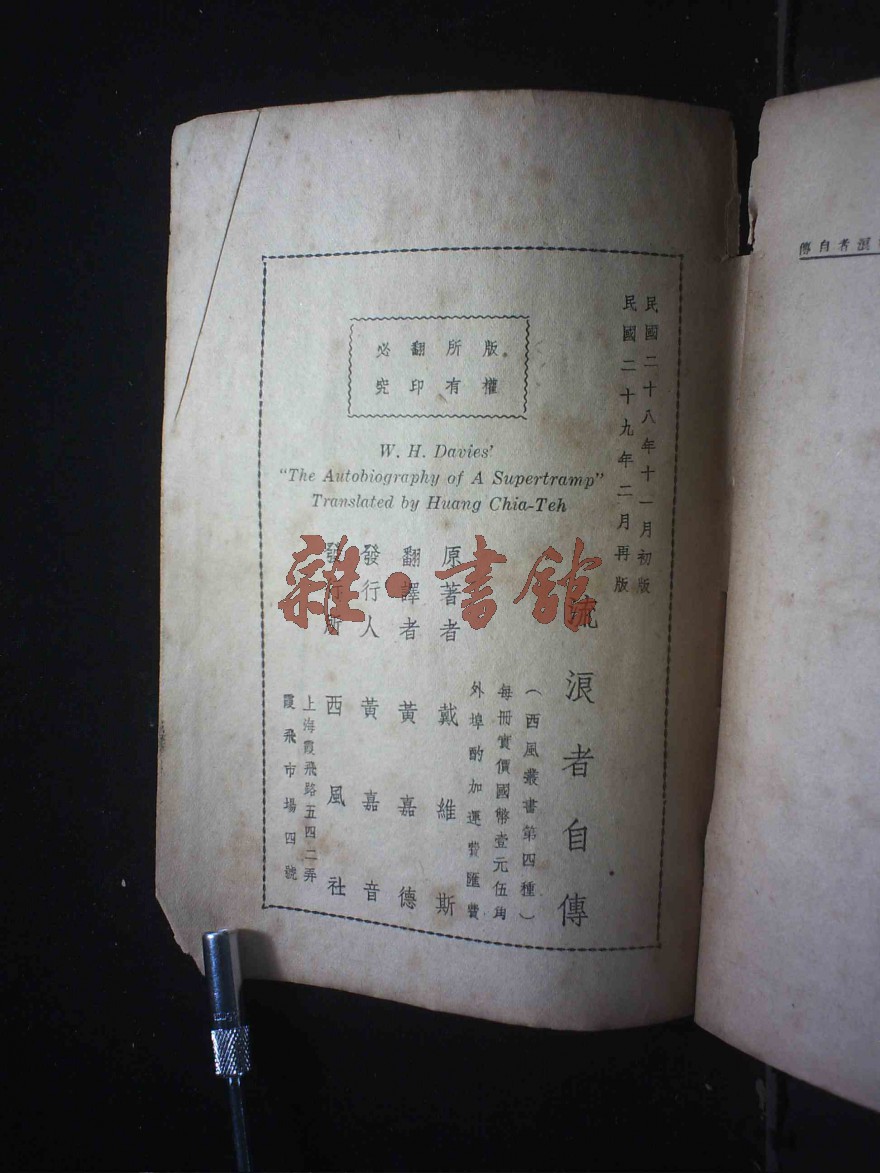 民國二十八年十一月初版
民國二十九年二月再版
版權所有翻印必究
W. H. Davies'
“The Autobiography of A Supertramp”
Translated by Huang Chia-Teh
流浪者自傳
(西風叢書第四種)
每冊實價國幣壹元伍角
外埠酌加運費匯費
原著者 戴維斯
翻譯者 黃嘉德
發行人 黃嘉音
發行所 西風社
上海霞飛路五四二弄
霞飛市場四號
雜·書館
浪者自傳